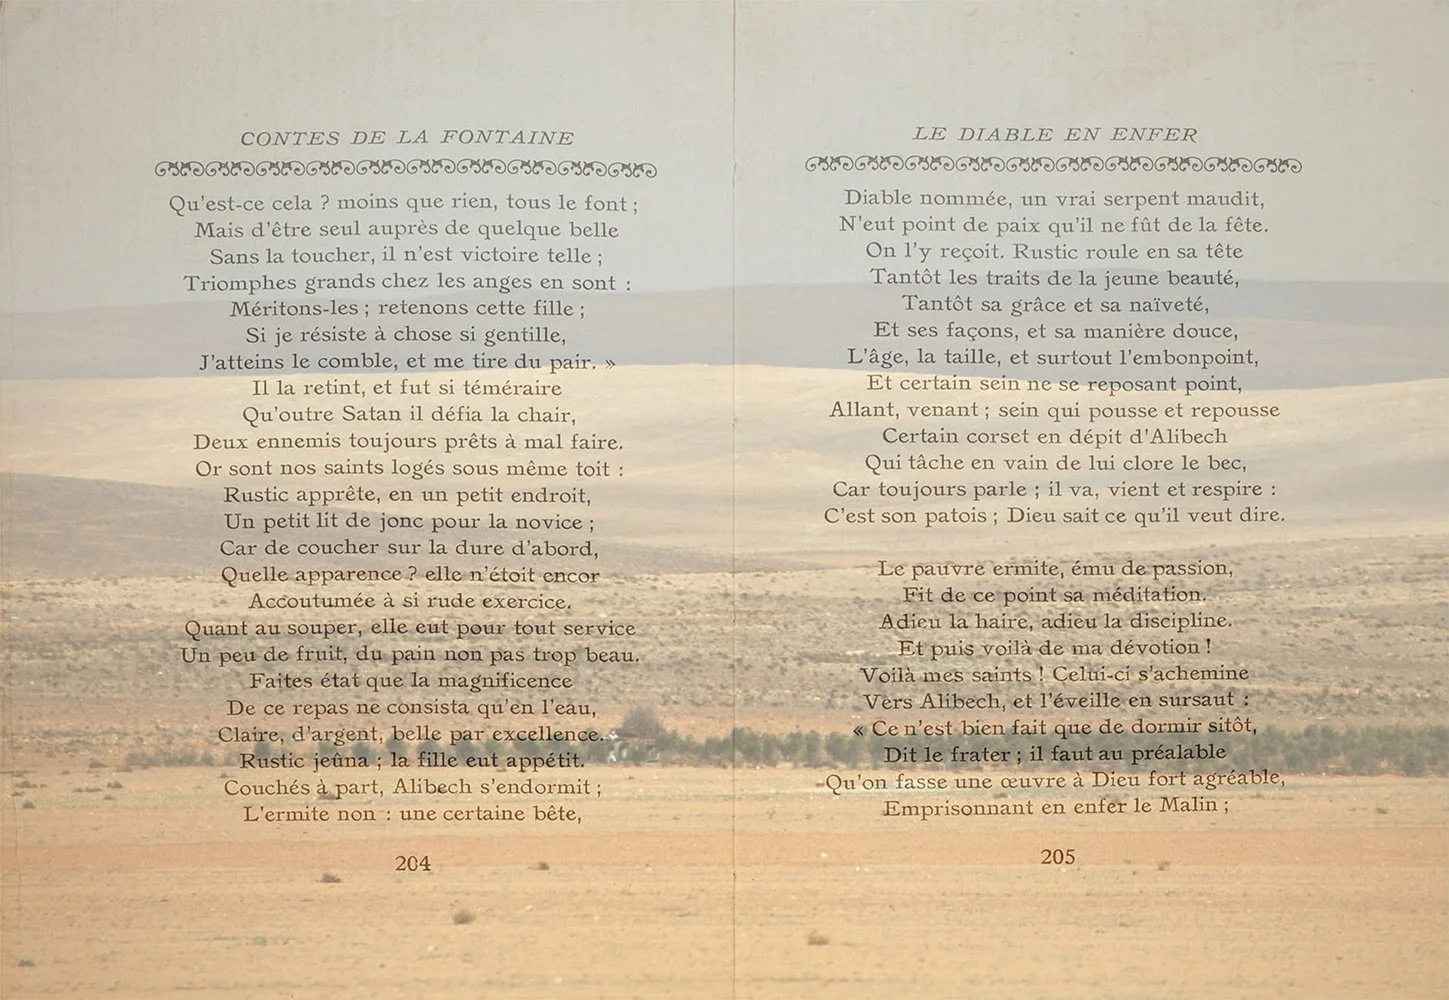 CONTES DE LA FONTAINE
Qu'est-ce cela ? moins que rien, tous le font ;
Mais d'être seul auprès de quelque belle
Sans la toucher, il n'est victoire telle ;
Triomphes grands chez les anges en sont :
Méritons-les ; retenons cette fille ;
Si je résiste à chose si gentille,
J'atteins le comble, et me tire du pair. »
Il la retint, et fut si téméraire
Qu'outre Satan il défia la chair,
Deux ennemis toujours prêts à mal faire.
Or sont nos saints logés sous même toit :
Rustic apprête, en un petit endroit,
Un petit lit de jonc pour la novice ;
Car de coucher sur la dure d'abord,
Quelle apparence ? elle n'étoit encor
Accoutumée à si rude exercice.
Quant au souper, elle eut pour tout service
Un peu de fruit, du pain non pas trop beau.
Faites état que la magnificence
De ce repas ne consista qu'en l'eau,
Claire, d'argent, belle par excellence.
Rustic jeûna ; la fille eut appétit.
Couchés à part, Alibech s'endormit ;
L'ermite non : une certaine bête,
204
LE DIABLE EN ENFER
Diable nommée, un vrai serpent maudit,
N'eut point de paix qu'il ne fût de la fête.
On l'y reçoit. Rustic roule en sa tête
Tantôt les traits de la jeune beauté,
Tantôt sa grâce et sa naïveté,
Et ses façons, et sa manière douce,
L'âge, la taille, et surtout l'embonpoint,
Et certain sein ne se reposant point,
Allant, venant ; sein qui pousse et repousse
Certain corset en dépit d'Alibech
Qui tâche en vain de lui clore le bec,
Car toujours parle ; il va, vient et respire :
C'est son patois ; Dieu sait ce qu'il veut dire.
Le pauvre ermite, ému de passion,
Fit de ce point sa méditation.
Adieu la haire, adieu la discipline.
Et puis voilà de ma dévotion !
Voilà mes saints ! Celui-ci s'achemine
Vers Alibech, et l'éveille en sursaut :
« Ce n'est bien fait que de dormir sitôt,
Dit le frater ; il faut au préalable
Qu'on fasse une œuvre à Dieu fort agréable,
Emprisonnant en enfer le Malin ;
205